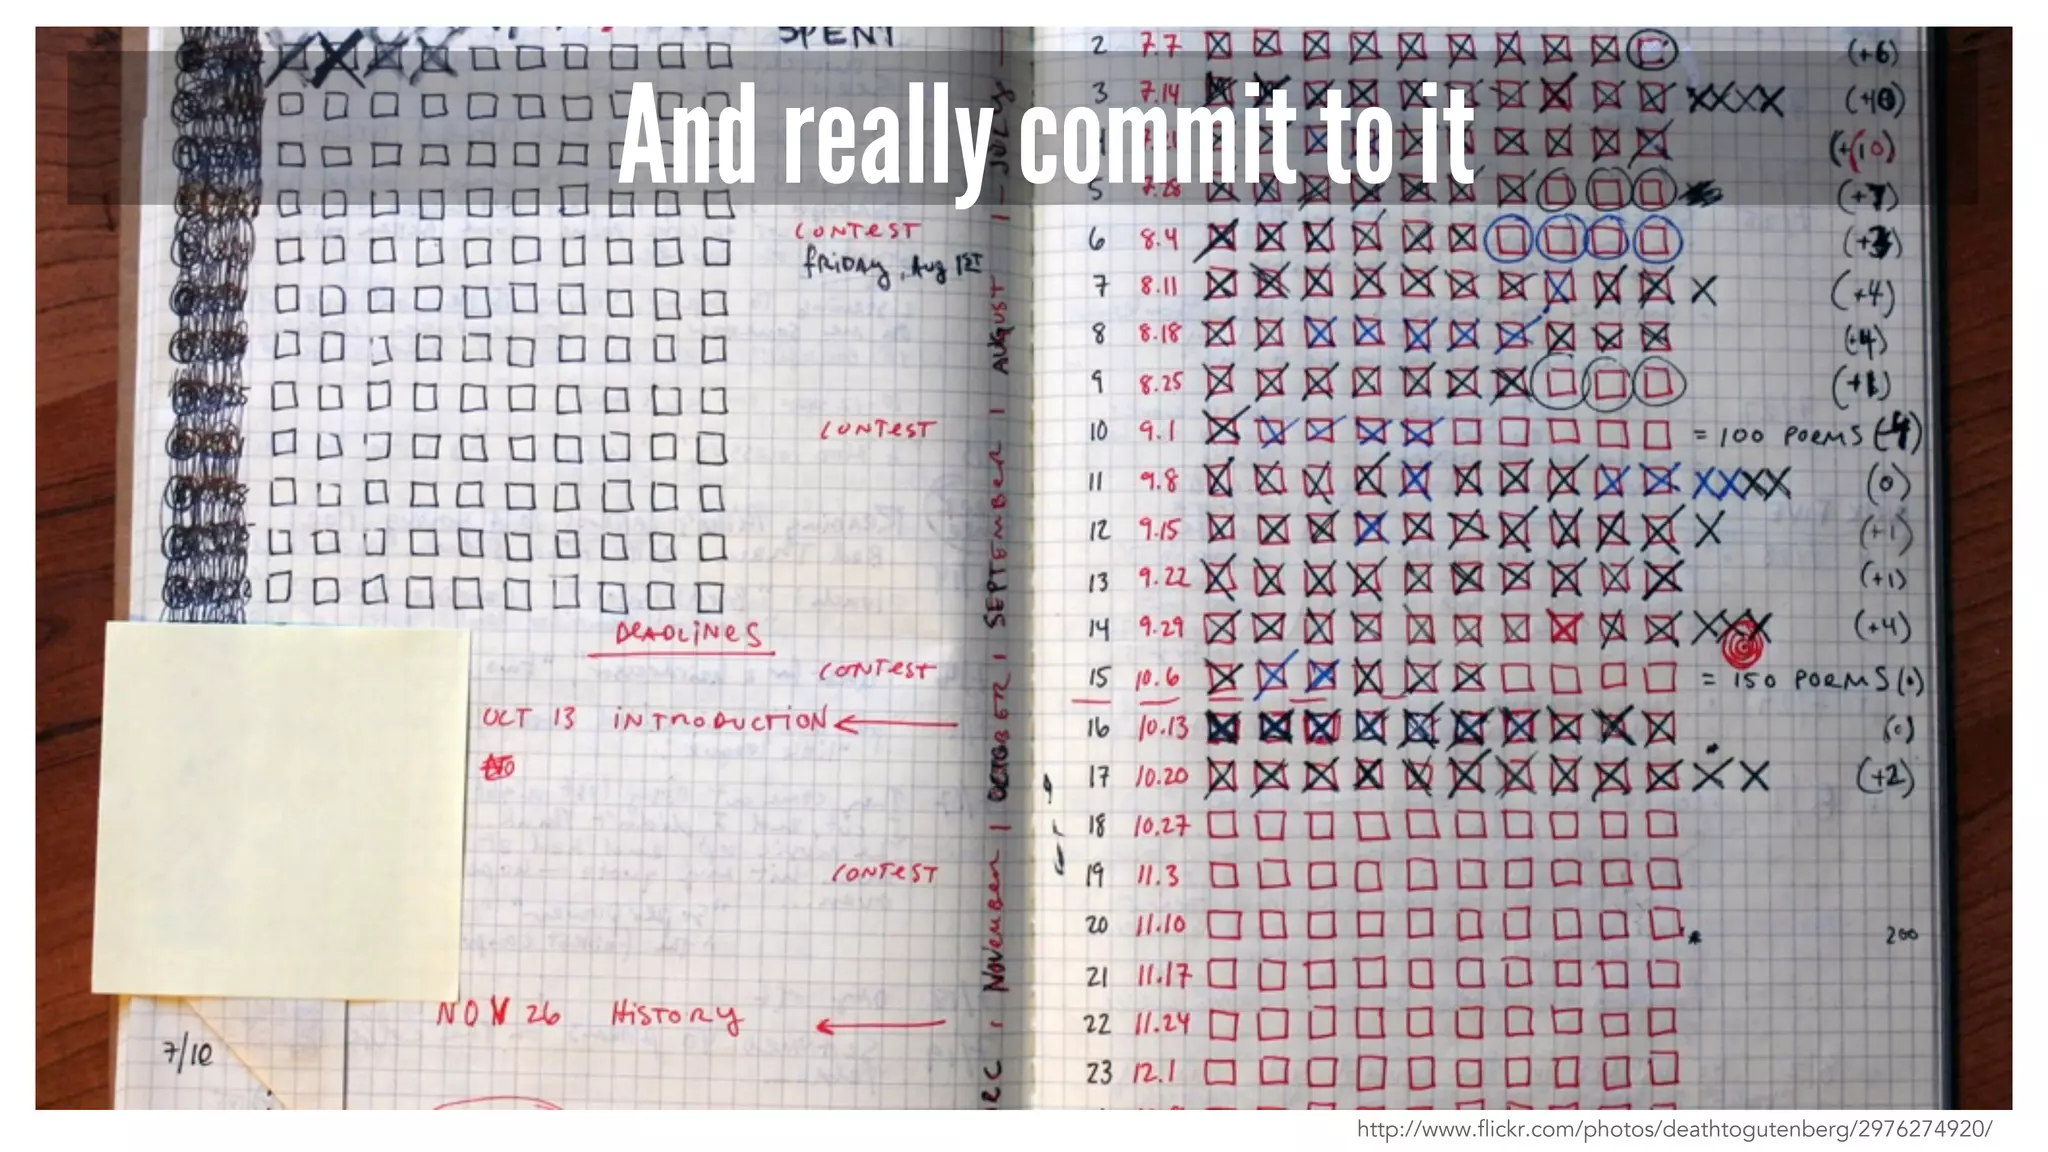 And really commit to it
SPENT
CONTEST
FRIDAY, AUG 1ST
CONTEST
DEADLINES
CONTEST
OCT 13 INTRODUCTION
CONTEST
NOV 26 HISTORY
7/10
JULY | AUGUST | SEPTEMBER | OCTOBER | NOVEMBER |
2 7.7 (+6)
3 7.14
(+10)
5 7.28
6 8.4
7 8.11 (+4)
8 8.18
9 8.25
10 9.1 = 100 POEMS
11 9.8 (0)
12 9.15 (+1)
13 9.22 (+1)
14 9.29 (+4)
15 10.6 = 150 POEMS (0)
16 10.13 (0)
17 10.20 (+2)
18 10.27
19 11.3
20 11.10 200
21 11.17
22 11.24
23 12.1
http://www.flickr.com/photos/deathtogutenberg/2976274920/